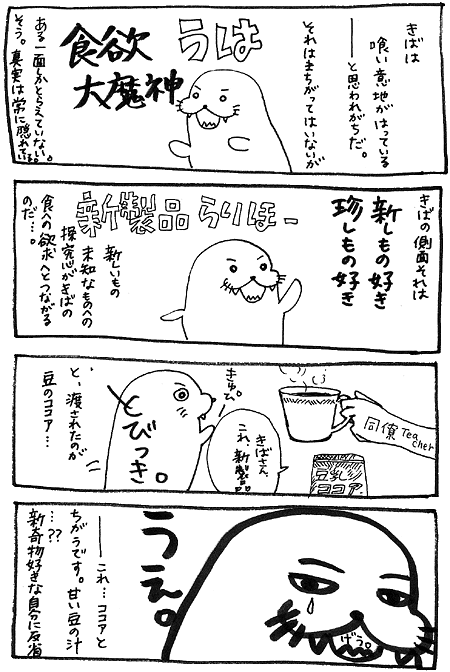 きばは
喰い意地がはっている
――と思われがちだ。
それはまちがってはいないが
うは
食欲
大魔神
ある一面しかとらえていない。
そう。真実は常に隠れている。
きばの側面それは
新しもの好き
珍しもの好き
新製品らりほー
新しいもの
未知なものへの
探究心がきばの
食への欲求へとつながる
のだ…。
同僚Tea
cher
豆乳
ココア
きばさん、
これ、新製品
きゅぴ。
とびつき。
と、渡されたのが
豆のココア…
うえ。
げう。
――これ…ココアと
ちがうです。甘い豆の汁
…??
新奇物好きな自分に反省